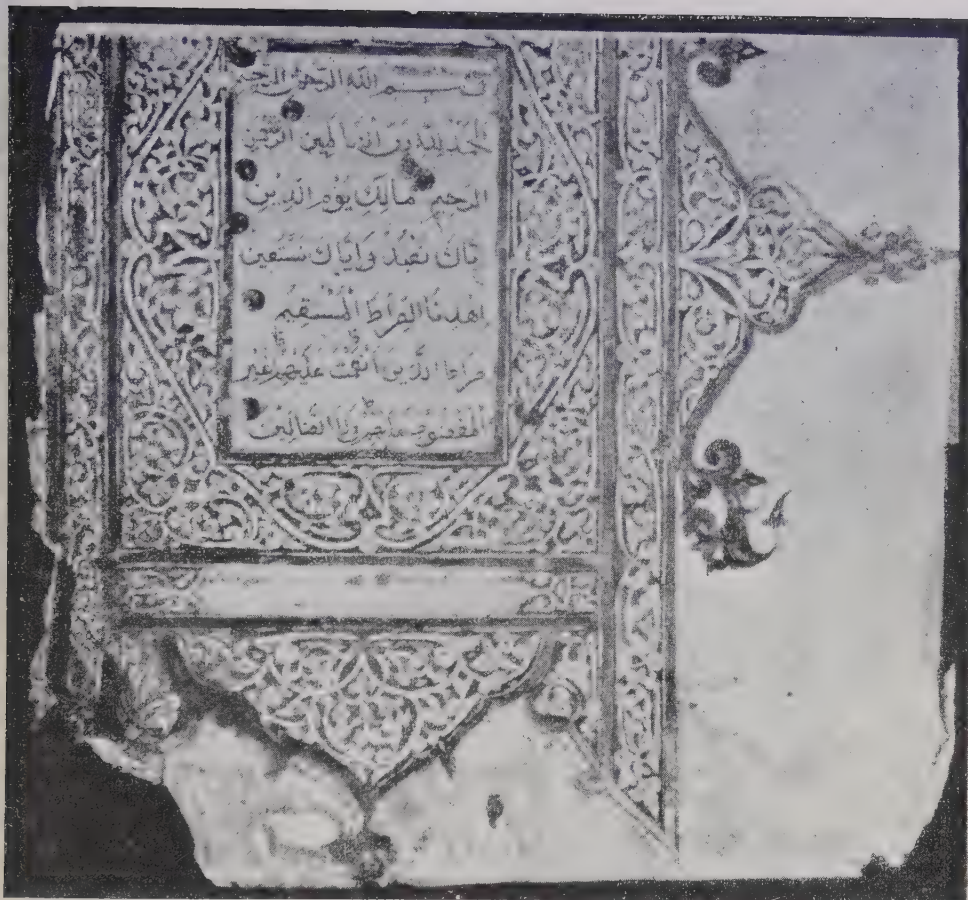 بِسْمِ اللّٰهِ الرَّحْمٰنِ الرَّحِيمِ
الْحَمْدُ لِلّٰهِ رَبِّ الْعَالَمِينَ الرَّحْمٰنِ
الرَّحِيمِ مَالِكِ يَوْمِ الدِّينِ
إِيَّاكَ نَعْبُدُ وَإِيَّاكَ نَسْتَعِينُ
اِهْدِنَا الصِّرَاطَ الْمُسْتَقِيمَ
صِرَاطَ الَّذِينَ أَنْعَمْتَ عَلَيْهِمْ غَيْرِ
الْمَغْضُوبِ عَلَيْهِمْ وَلَا الضَّالِّينَ